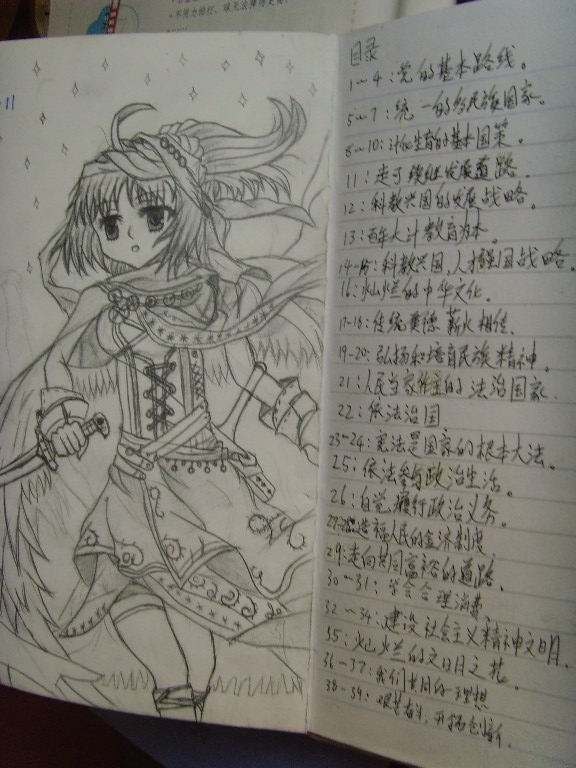 • 不得力拍打、球无法障碍更
-11
目录
1~4:党的基本路线。
5~7:统一的多民族国家。
8~10:计划生育的基本国策。
11:走可持续发展道路.
12:科教兴国的发展战略。
13:百年大计教育为本.
科教兴国,人才强国战略.
16:灿烂的中华文化.
17-18:传统美德 薪火相传.
19-20:弘扬和培育民族精神。
21:人民当家作主的 法治国家.
22:依法治国
23~24:宪法是国家的根本大法。
25:依法参与政治生活。
26:自觉履行政治义务。
造福人民的经济制度.
29:走向共同富裕的道路.
30~31:学会合理消费.
32~34:建设社会主义精神文明.
35:灿烂的文明之花.
36-37:我们共同的理想
38-39:艰苦奋斗,开拓创新.